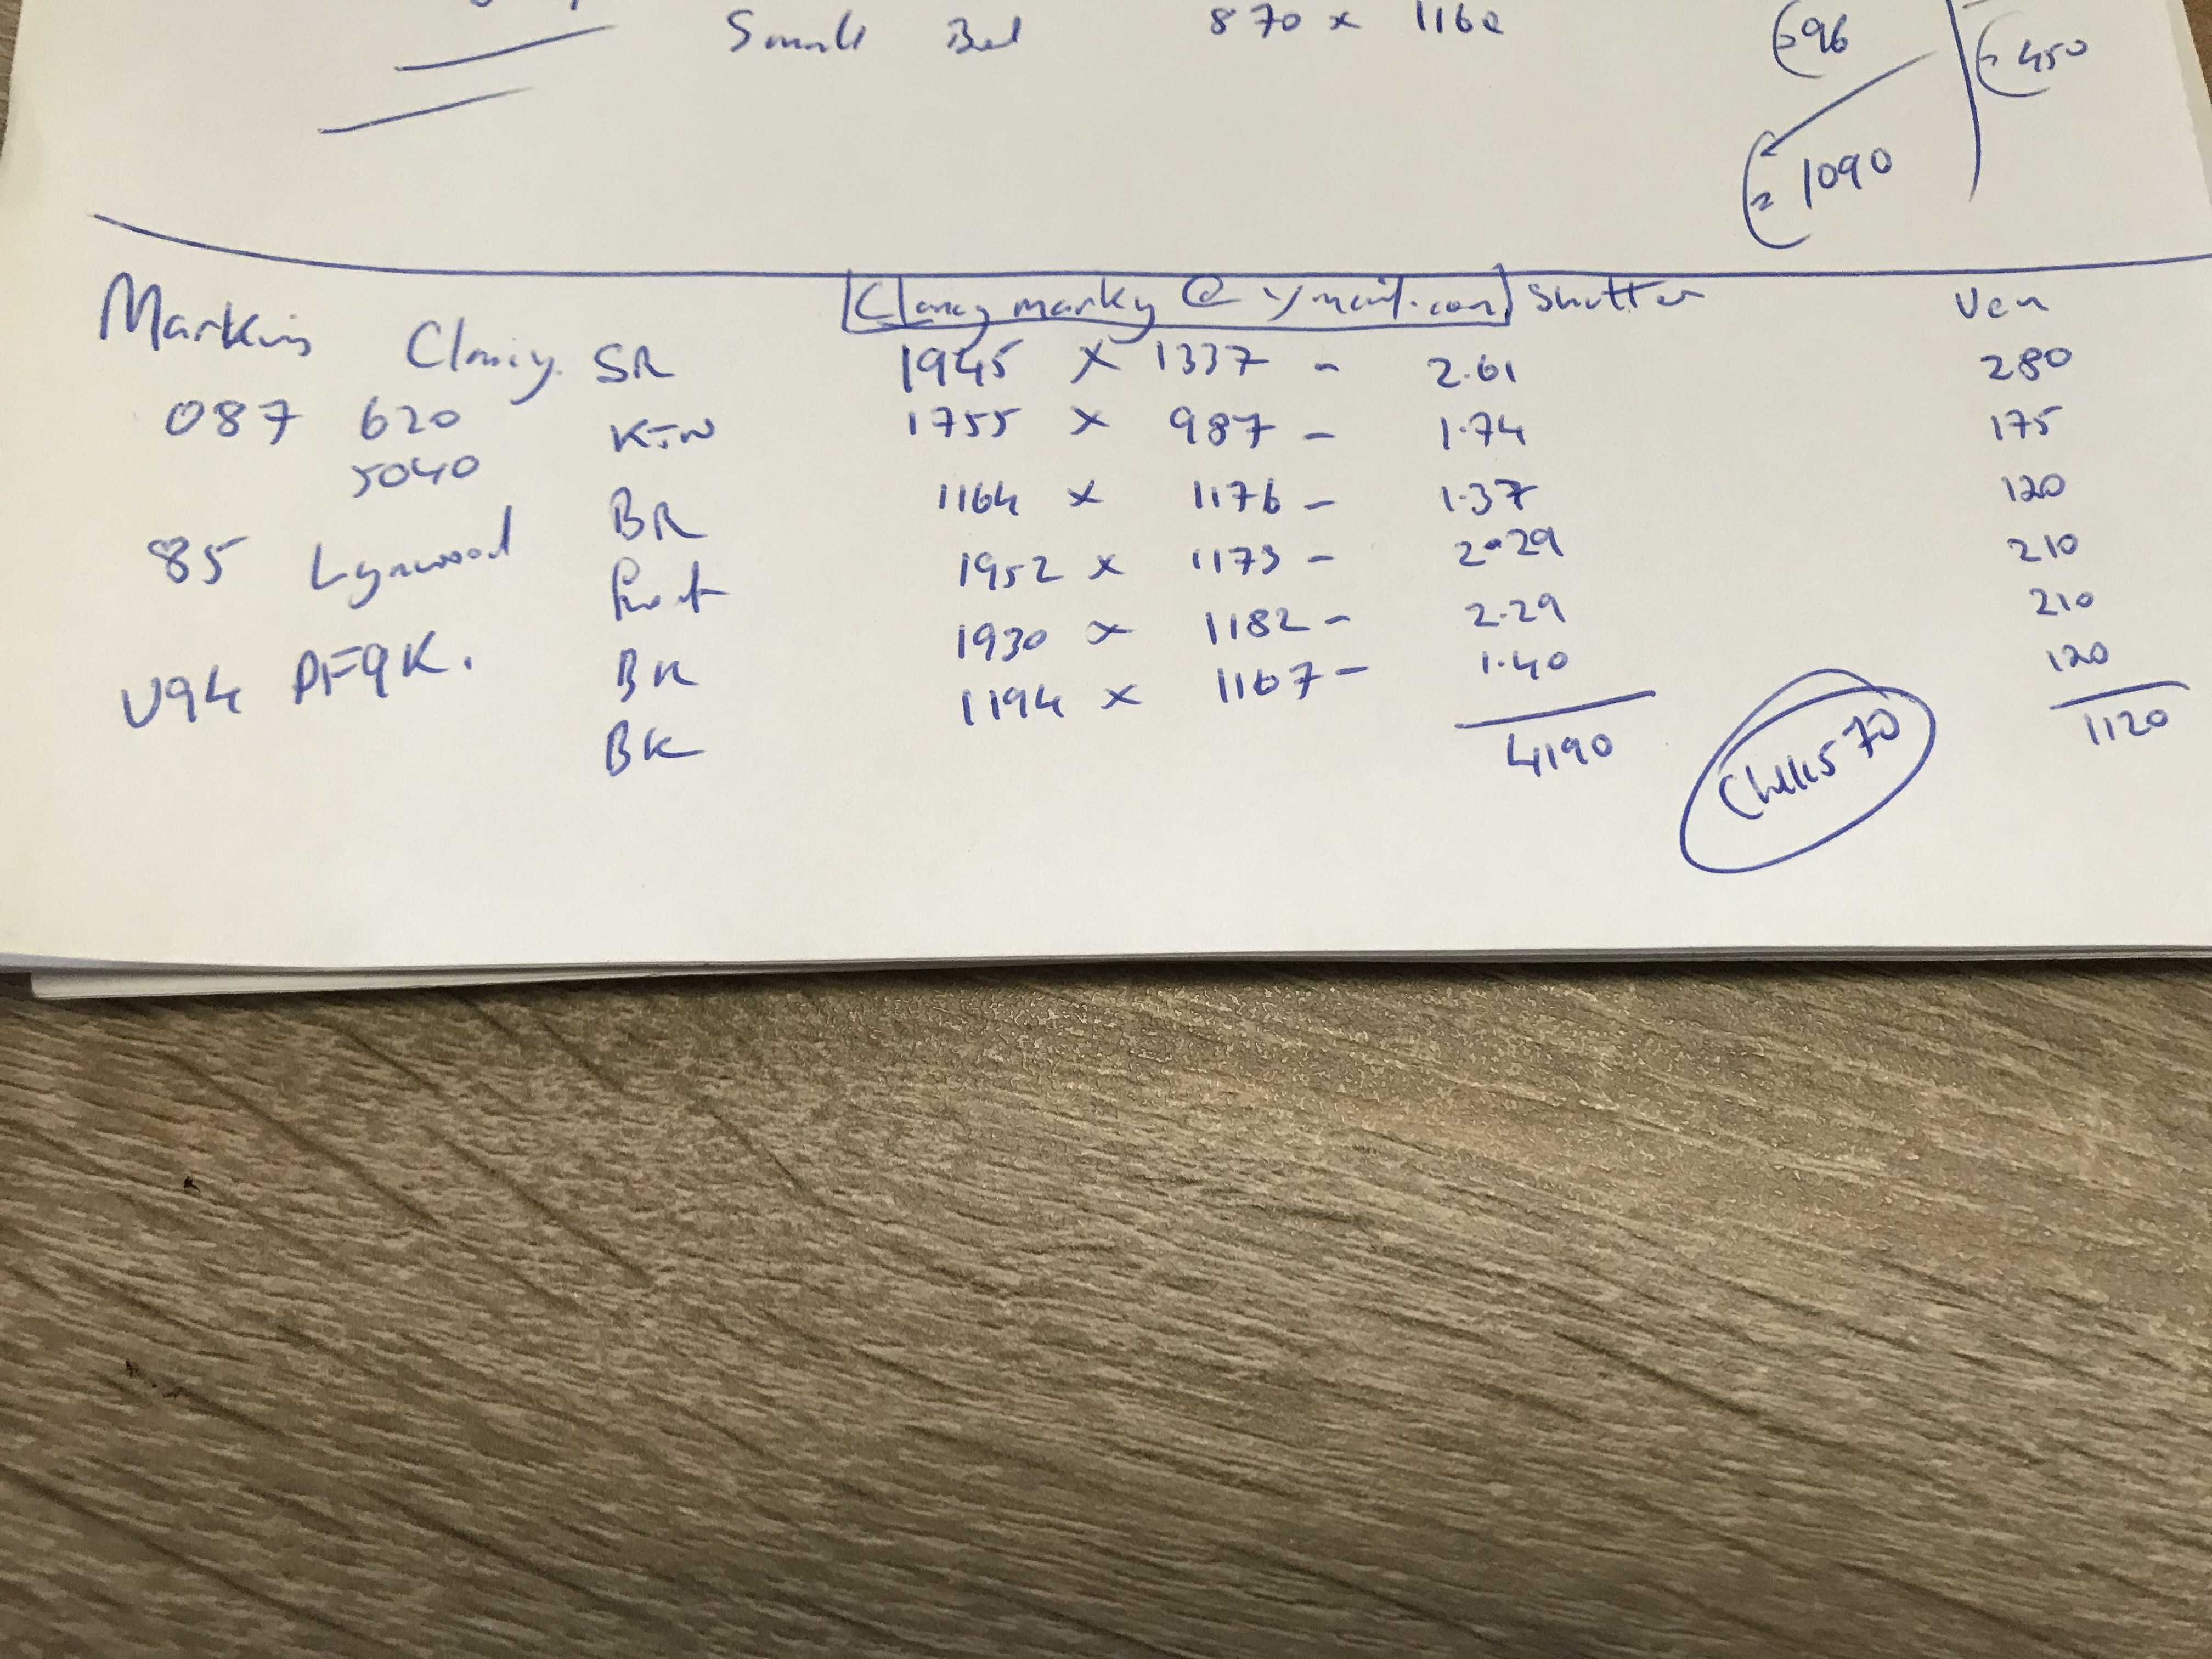 Small Bed 870 x 1160
696
= 450
= 1090
[Clancymarky@ymail.com] Shutter Ven
Markus Clancy. SR 1945 x 1337 - 2.61 280
087 620 Kit 1755 x 987 - 1.74 175
5040
BR 1164 x 1176 - 1.37 120
85 Lynwood Front 1952 x 1173 - 2.29 210
BR 1930 x 1182 - 2.29 210
V94 PF9K. BK 1194 x 1167 - 1.40 120
4190 570 1120